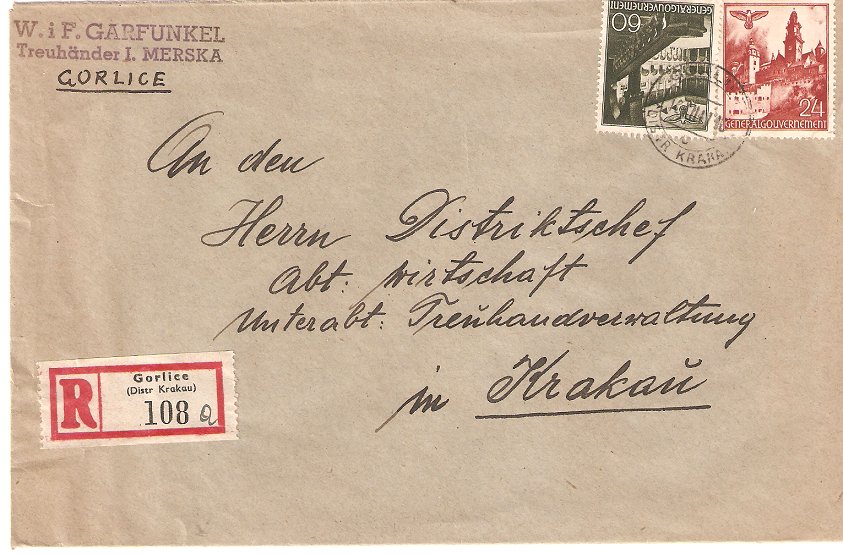 W. i F. GARFUNKEL
Treuhänder I. MERSKA
GORLICE
60
GENERALGOUVERNEMENT
24
GENERALGOUVERNEMENT
DISTR KRAKAU
An den
Herrn Distriktschef
Abt. Wirtschaft
Unterabt. Treuhandverwaltung
in Krakau
R
Gorlice
(Distr Krakau)
108 a